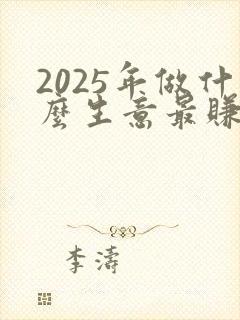 2025年做什
麼生意最賺
李濤